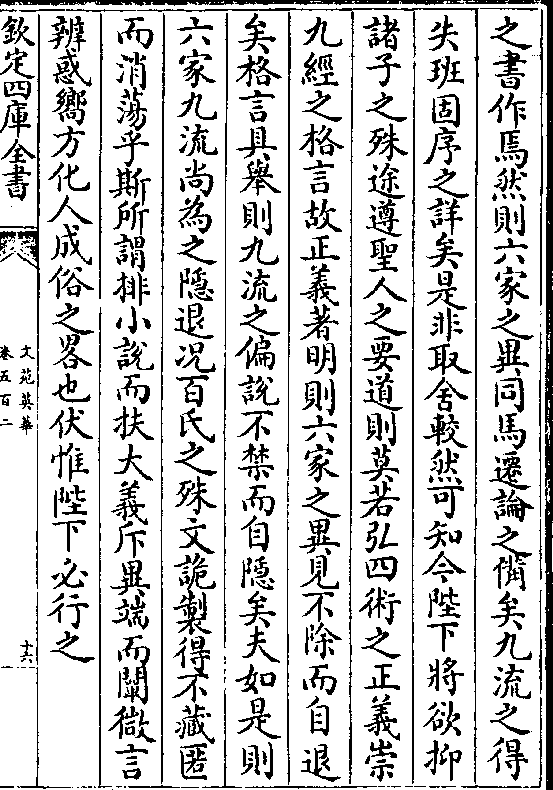 之書作焉然則六家之異同馬遷論之備矣九流之得
失班固序之詳矣是非取舍較然可知今陛下將欲抑
諸子之殊途遵聖人之要道則莫若弘四術之正義崇
九經之格言故正義著明則六家之異見不除而自退
矣格言具舉則九流之偏説不禁而自隱矣夫如是則
六家九流尚為之隱退况百氏之殊文詭製得不藏匿
而消蕩乎斯所謂排小説而扶大義斥異端而闡微言
辨惑嚮方化人成俗之畧也伏惟陛下必行之
欽定四庫全書
文苑英華
卷五百二
十六